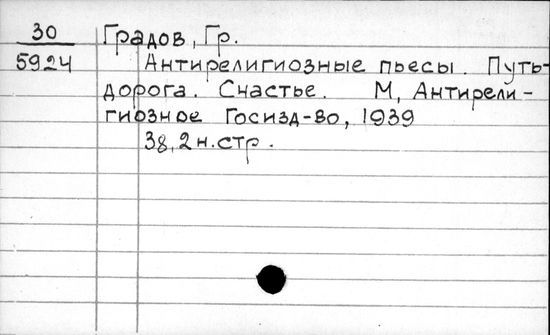 30 Градов, Гр.
5924 Антирелигиозные пьесы. Путь-
дорога. Счастье. М, Антирели-
гиозное Госизд-во, 1939
38, 2 н. стр.